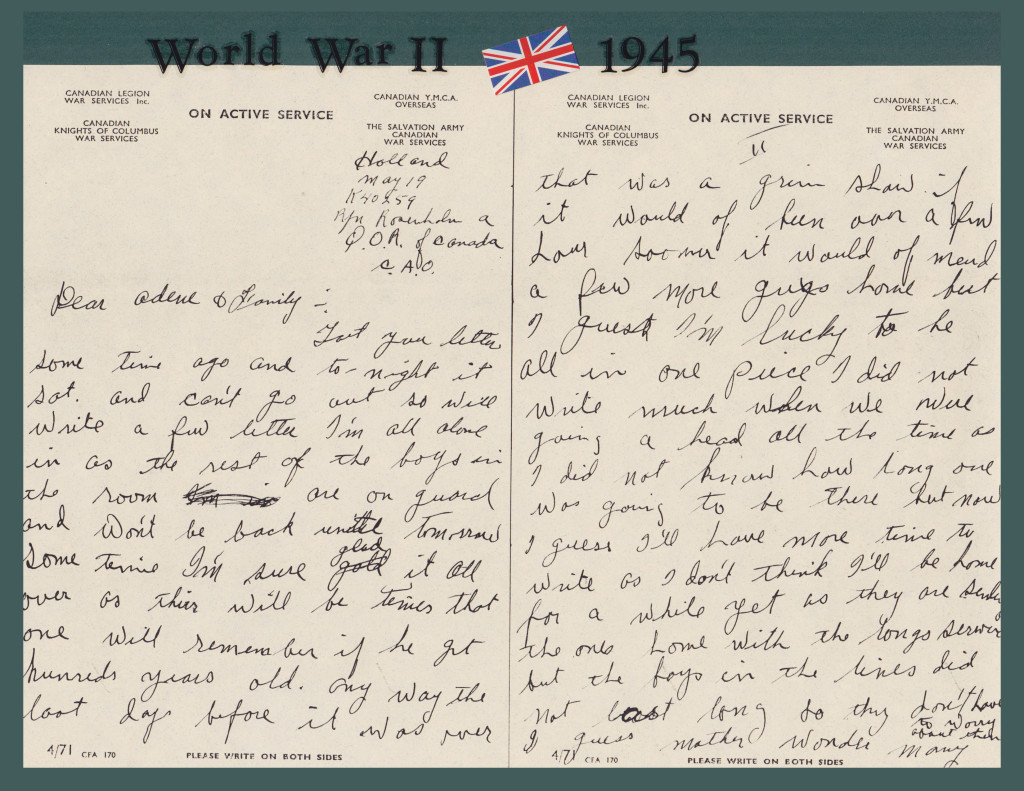 World War II 1945
CANADIAN LEGION
WAR SERVICES Inc.
CANADIAN
KNIGHTS OF COLUMBUS
WAR SERVICES
ON ACTIVE SERVICE
CANADIAN Y.M.C.A.
OVERSEAS
THE SALVATION ARMY
CANADIAN
WAR SERVICES
Holland
May 19
K40259
Rfn Rosenholm a
Q.O.R. of Canada
C.A.O.
Dear adene & Family :-
Got your letter
some time ago and to-night it
sat. and can't go out so will
write a few letter I'm all alone
in as the rest of the boys in
the room are on guard
and won't be back until tomorrow
some time I'm sure glad it all
over as thier will be times that
one will remember if he get
hunreds years old. any way the
last days before it was over
4/71 CFA 170 PLEASE WRITE ON BOTH SIDES
CANADIAN LEGION
WAR SERVICES Inc.
CANADIAN
KNIGHTS OF COLUMBUS
WAR SERVICES
ON ACTIVE SERVICE
CANADIAN Y.M.C.A.
OVERSEAS
THE SALVATION ARMY
CANADIAN
WAR SERVICES
II
that was a grim show if
it would of been over a few
hour sooner it would of mend
a few more guys home but
I guess I'm lucky to be
all in one piece I did not
write much when we were
going a head all the time as
I did not know how long one
was going to be there but now
I guess I'll have more time to
write as I don't think I'll be home
for a while yet as they are sending
the ones home with the longs service
but the boys in the lines did
not last long so they don't have
to worry
about them
I guess mother wonder many
4/71 CFA 170 PLEASE WRITE ON BOTH SIDES